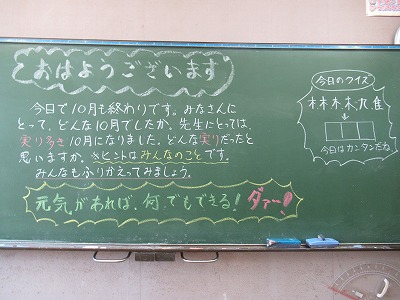 おはようございます
今日で10月も終わりです。みなさんに
とって、どんな10月でしたか。先生にとっては、
実り多き10月になりました。どんな実りだったと
思いますか。※ヒントはみんなのことです。
みんなもふりかえってみましょう。
元気があれば、何でもできる!ダァー!
今日のクイズ
林林木九隹
今日はカンタンだね